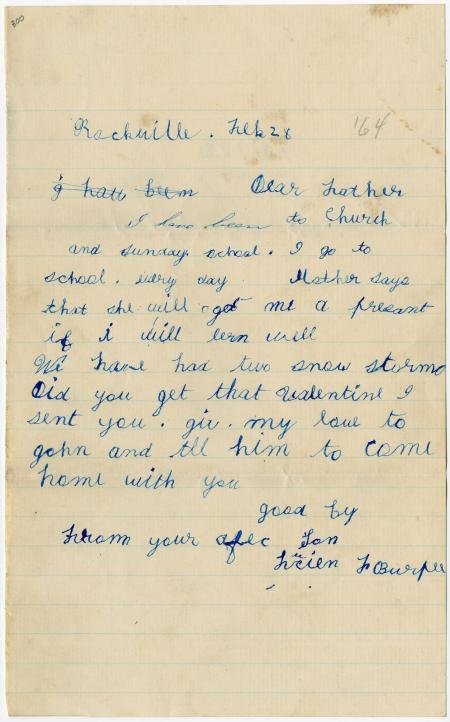 300
Rockville. Feb 28 '64
I have been Dear Father
I have been to Church
and sunday. school. I go to
school. every day Mother says
that she will get me a presant
if i will lern well
We have had two snow storms
Did you get that Valentine I
sent you. giv. my love to
gohn and tell him to come
home with you
good by
From your afec Son
Lucien F Burpee